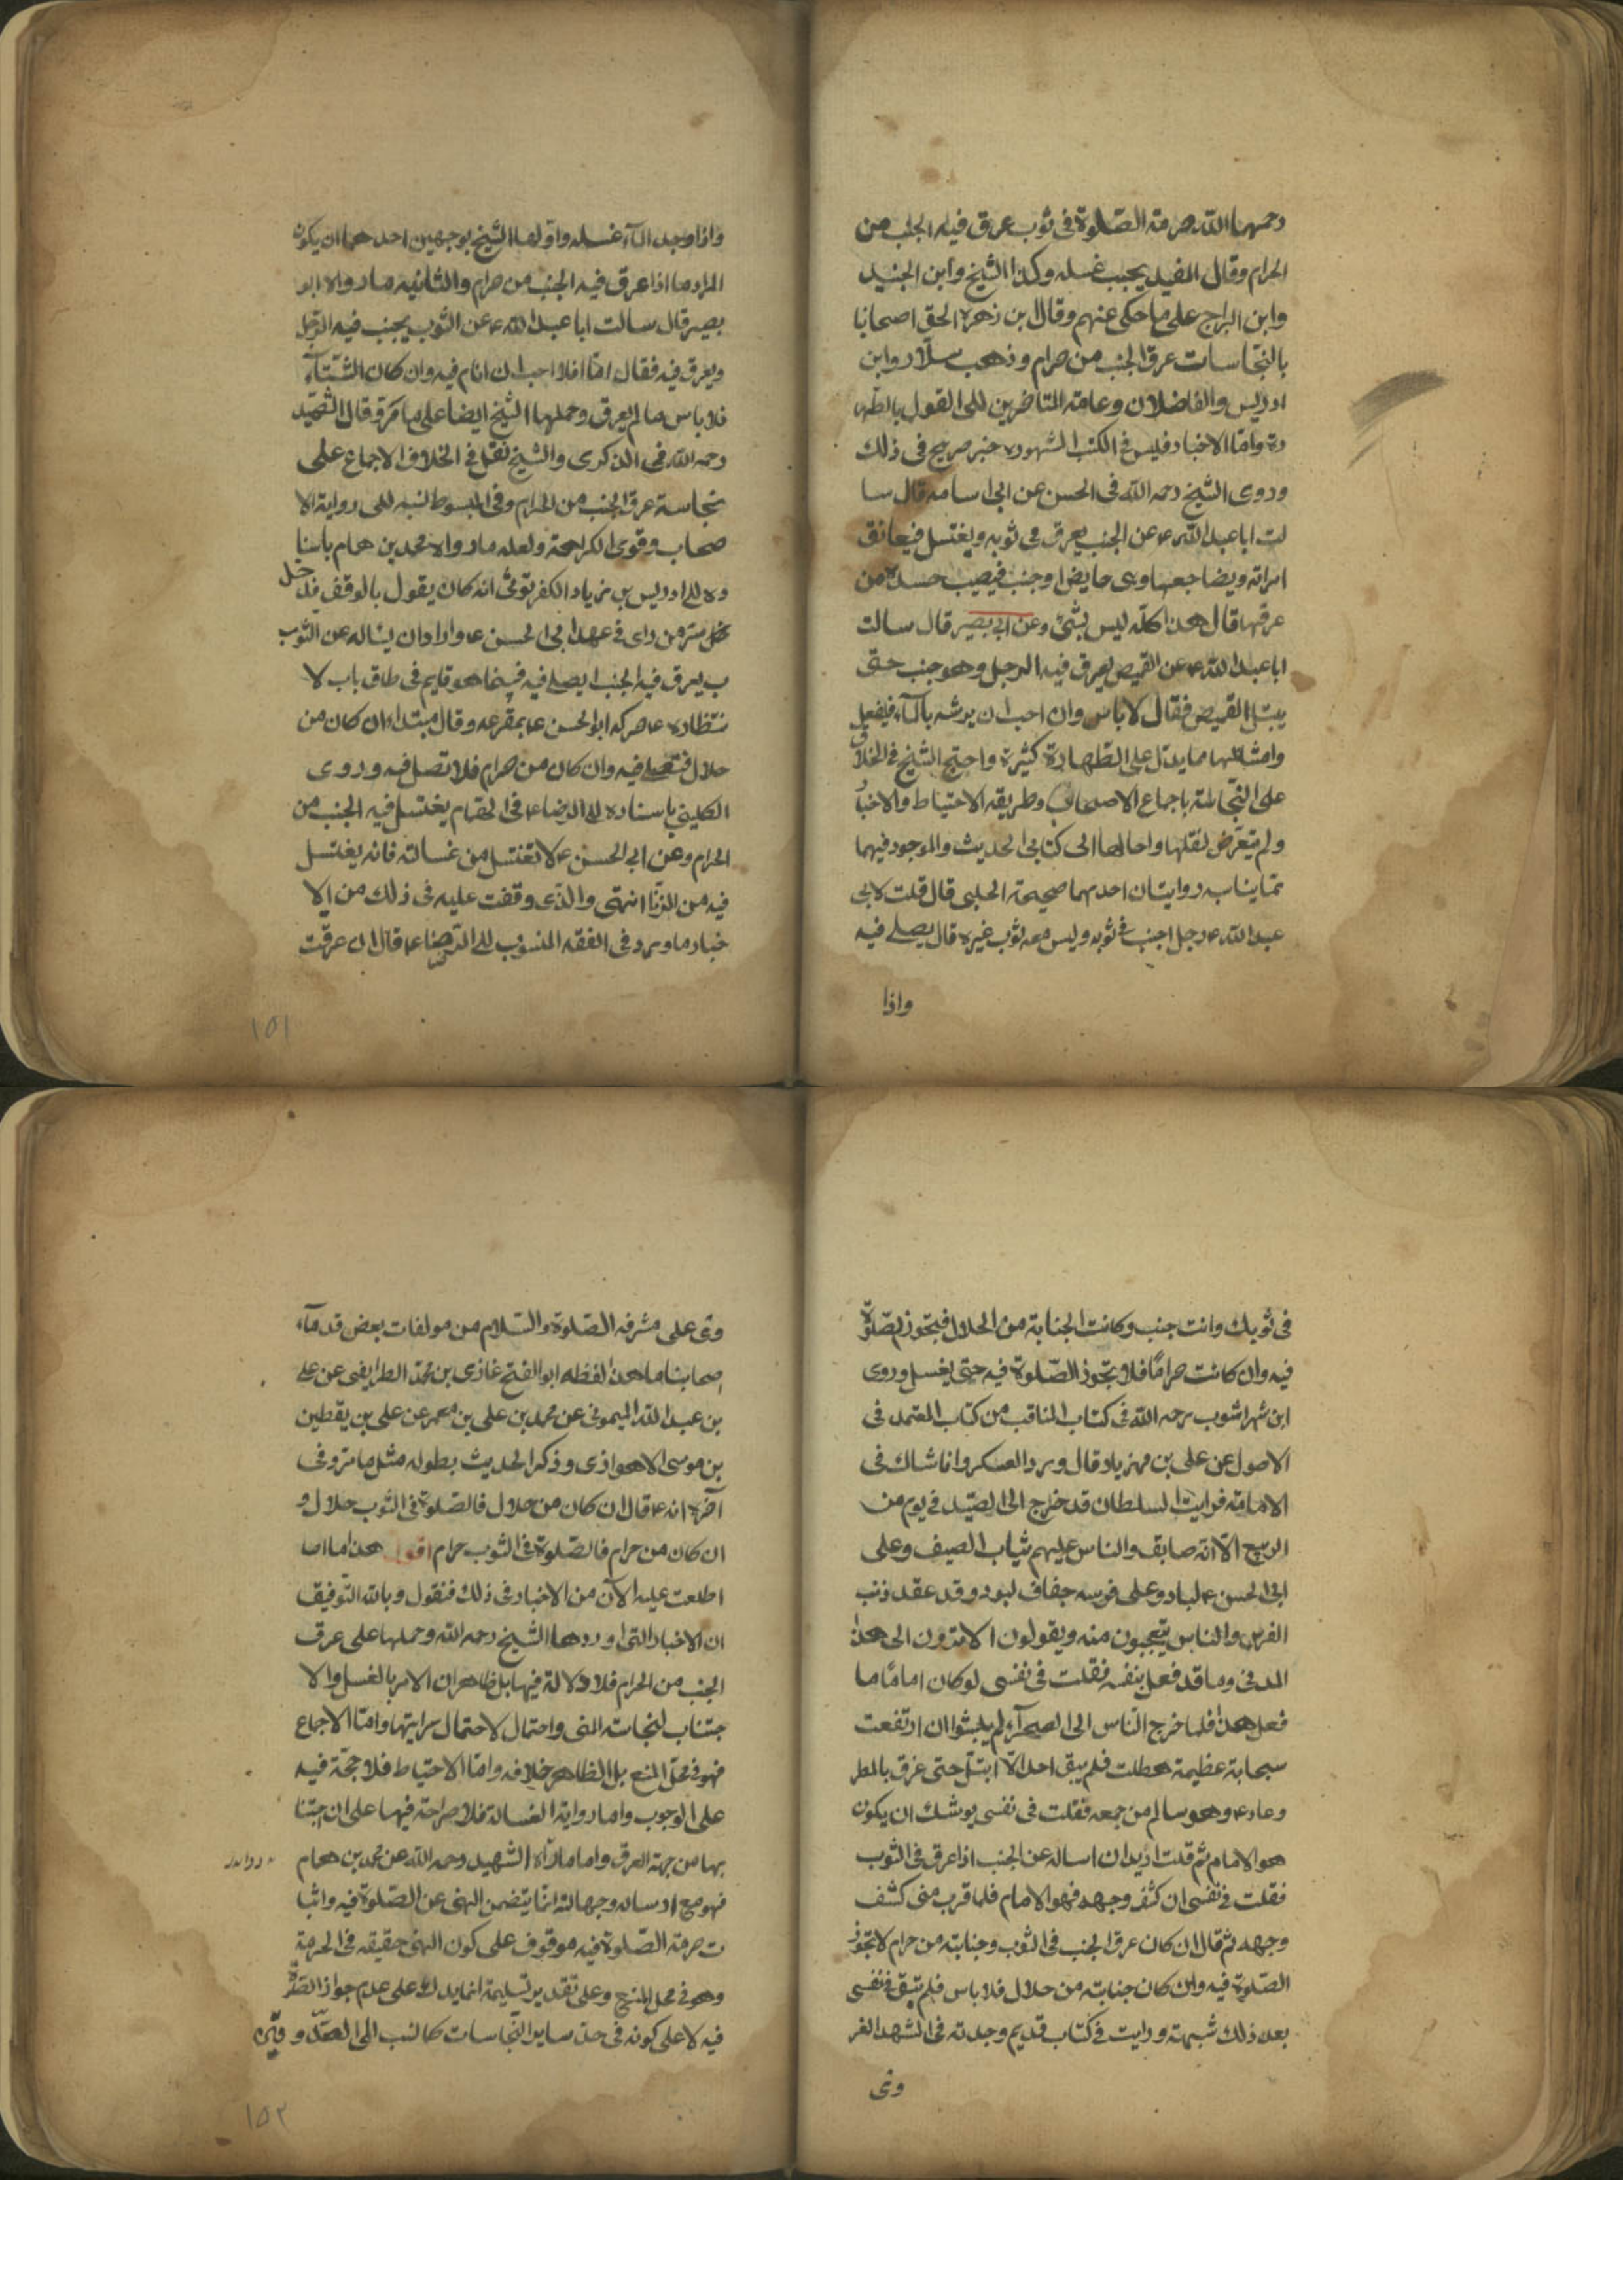 رحمهما الله حرمة الصّلوة فى ثوب عرق فيه الجنب من
الحرام وقال المفيد يجب غسله وكذا الشيخ وابن الجنيد
وابن البراج على ما حكى عنهم وقال ابن زهرة الحق اصحابنا
بالنجاسات عرق الجنب من حرام وذهب سلّار وابن
ادريس والفاضلان وعامة المتاخرين الى القول بالطّها
رة وامّا الاخبار فليس فى الكتب المشهورة خبر صريح فى ذلك
وروى الشيخ رحمه الله فى الحسن عن ابى اسامة قال سا
لت ابا عبد الله ع عن الجنب يعرق فى ثوبه ويغتسل فيعانق
امراته ويضاجعها وهى حايض او جنب فيصيب جسده من
عرقها قال هذا كلّه ليس بشئ وعن ابى بصير قال سالت
ابا عبد الله ع عن القميص يعرق فيه الرجل وهو جنب حتى
يبتل القميص فقال لا باس وان احب ان يرشه بالمآء فليفعل
وامثالها مما يدل على الطهارة كثيرة واحتج الشيخ فى الخلاف
على النجاسة باجماع الاصحاب وطريقه الاحتياط والاخبار
ولم يتعرّض لنقلها واحالها الى كتابى الحديث والموجود فيهما
ممّا يناسبه روايتان احدهما صحيحة الحلبى قال قلت لابى
عبد الله ع رجل اجنب فى ثوبه وليس معه ثوب غيره قال يصلى فيه
واذا
واذا وجد المآء غسله واوّلها الشيخ بوجهين احدهما ان يكون
المراد ما اذا عرق فيه الجنب من حرام والثانيه ما رواه ابو
بصير قال سالت ابا عبد الله ع عن الثوب يجنب فيه الرّجل
ويعرق فيه فقال امّا انا فلا احب ان انام فيه وان كان الشتآء
فلا باس ما لم يعرق وحملها الشيخ ايضا على ما مرّ وقال الشّهيد
رحمه الله فى الذكرى والشيخ نقل فى الخلاف الاجماع على
نجاسة عرق الجنب من الحرام وفى المبسوط نسبه الى رواية الا
صحاب وقوى الكراهة ولعله ما رواه محمد بن همام باسنا
ده الى ادريس بن زياد الكفرتوثى انه كان يقول بالوقف فدخل
سرّ من راى فى عهد ابى الحسن ع واراد ان يساله عن الثوب
ب يعرق فيه الجنب ايصلى فيه فبينما هو قايم فى طاق باب لا
نتظاره ع حركه ابو الحسن ع بمقرعه وقال مبتداء ان كان من
حلال فصلّ فيه وان كان من حرام فلا تصل فيه وروى
الكلينى باسناده الى الرضا ع فى الحمام يغتسل فيه الجنب من
الحرام وعن ابى الحسن ع لا تغتسل من غسالته فانه يغتسل
فيه من الزّنا انتهى والذى وقفت عليه فى ذلك من الا
خبار ما ورد فى الفقه المنسوب الى الرّضا ع قال ان عرقت
١٥١
فى ثوبك وانت جنب وكانت الجنابة من الحلال فيتجوز الصّلوة
فيه وان كانت حرامًا فلا تجوز الصّلوة فيه حتى يغسل وروى
ابن شهراشوب رحمه الله فى كتاب المناقب من كتاب المعتمد فى
الاصول عن على بن مهزياد قال ورد العسكر وانا شاك فى
الامامة فرايت السلطان قد خرج الى الصّيد فى يوم من
الربيع الّا انه صايف والناس عليهم ثياب الصيف وعلى
ابى الحسن ع لباد وعلى فرسه جفاف لبود وقد عقد ذنب
الفرس والناس يتعجبون منه ويقولون الا ترون الى هذا
المدنى وما قد فعل بنفسه فقلت فى نفسى لو كان امامًا ما
فعل هذا فلما خرج النّاس الى الصحرآء لم يلبثوا ان ارتفعت
سحابة عظيمة هطلت فلم يبق احد الّا ابتلّ حتى غرق بالمطر
وعاد ع وهو سالم من جمعه فقلت فى نفسى يوشك ان يكون
هو الامام ثم قلت اريد ان اساله عن الجنب اذا عرق فى الثوب
فقلت فى نفسى ان كشف وجهه فهو الامام فلما قرب منى كشف
وجهه ثم قال ان كان عرق الجنب فى الثوب وجنابته من حرام لا تجوز
الصّلوة فيه وان كان جنابته من حلال فلا باس فلم يبق فى نفسى
بعد ذلك شبهة ورايت فى كتاب قديم وجدته فى المشهد الغر
وى
وى على مشرفه الصّلوة والسّلام من مولفات بعض قدمآء
اصحابنا ما هذا لفظه ابو الفتح غازى بن محمّد الطرايفى عن على
بن عبد الله الميمونى عن محمد بن على بن معمر عن على بن يقطين
بن موسى الاهوازى وذكر الحديث بطوله مثل ما مرّ وفى
آخره انه ع قال ان كان من حلال فالصّلوة فى الثوب حلال و
ان كان من حرام فالصّلوة فى الثوب حرام اقول هذا ما
اطلعت عليه الآن من الاخبار فى ذلك فنقول وبالله التّوفيق
ان الاخبار التى اوردها الشيخ رحمه الله وحملها على عرق
الجنب من الحرام فلا دلالة فيها بل ظاهر ان الامر بالغسل والا
جتناب لنجاسة المنى واحتمال لاحتمال سرايتها وامّا الاجماع
فهو فى محلّ المنع بل الظاهر خلافه وامّا الاحتياط فلا حجّة فيه
على الوجوب واما رواية الغسالة فلا صراحة فيها على ان اجتنا
بها من جهة العرق واما ما رآه الشهيد رحمه الله عن محمد بن همام
فهو مع ارساله وجهالته انّما يتضمن النهى عن الصّلوة فيه واثبا
ت حرمة الصّلوة فيه موقوف على كون النهى حقيقه فى الحرمة
وهو فى محل المنع وعلى تقدير تسليمه انما يدل على عدم جواز الصّلوة
فيه لا على كونه فى حدّ ساير النّجاسات كما نسب الى الصّدوق
١٥٢